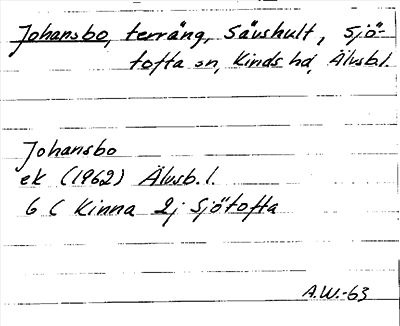 Johansbo, terräng, Sävshult, Sjö-
tofta sn, Kinds hd, Älvsb.l.
Johansbo
ek (1962) Älvsb.l.
6 C Kinna 2j Sjötofta
A.W.-63